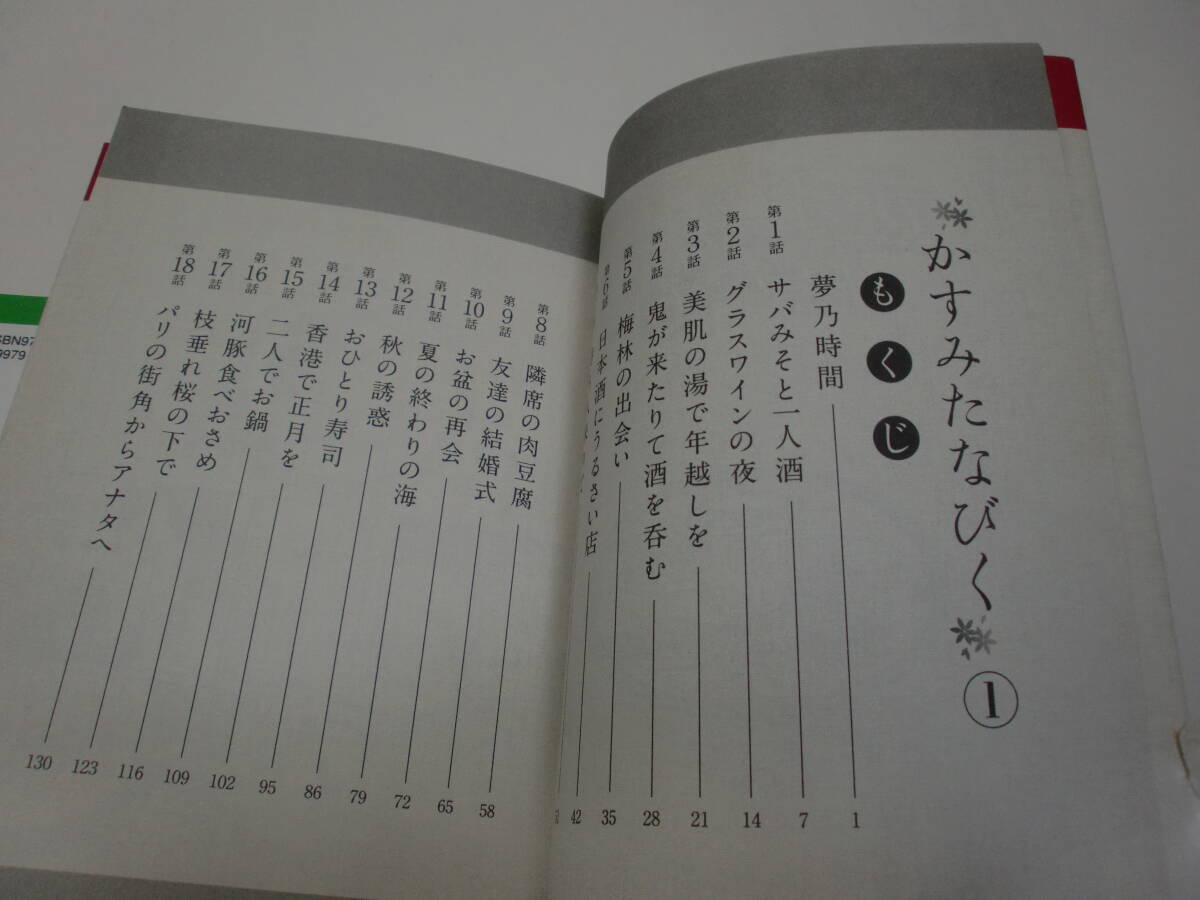 かすみたなびく ①
もくじ
夢乃時間 1
第1話 サバみそと一人酒 7
第2話 グラスワインの夜 14
第3話 美肌の湯で年越しを 21
第4話 鬼が来たりて酒を呑む 28
第5話 梅林の出会い 35
第6話 日本酒にうるさい店 42
第8話 隣席の肉豆腐 58
第9話 友達の結婚式 65
第10話 お盆の再会 72
第11話 夏の終わりの海 79
第12話 秋の誘惑 86
第13話 おひとり寿司 95
第14話 香港で正月を 102
第15話 二人でお鍋 109
第16話 河豚食べおさめ 116
第17話 枝垂れ桜の下で 123
第18話 パリの街角からアナタへ 130
SBN97
9979